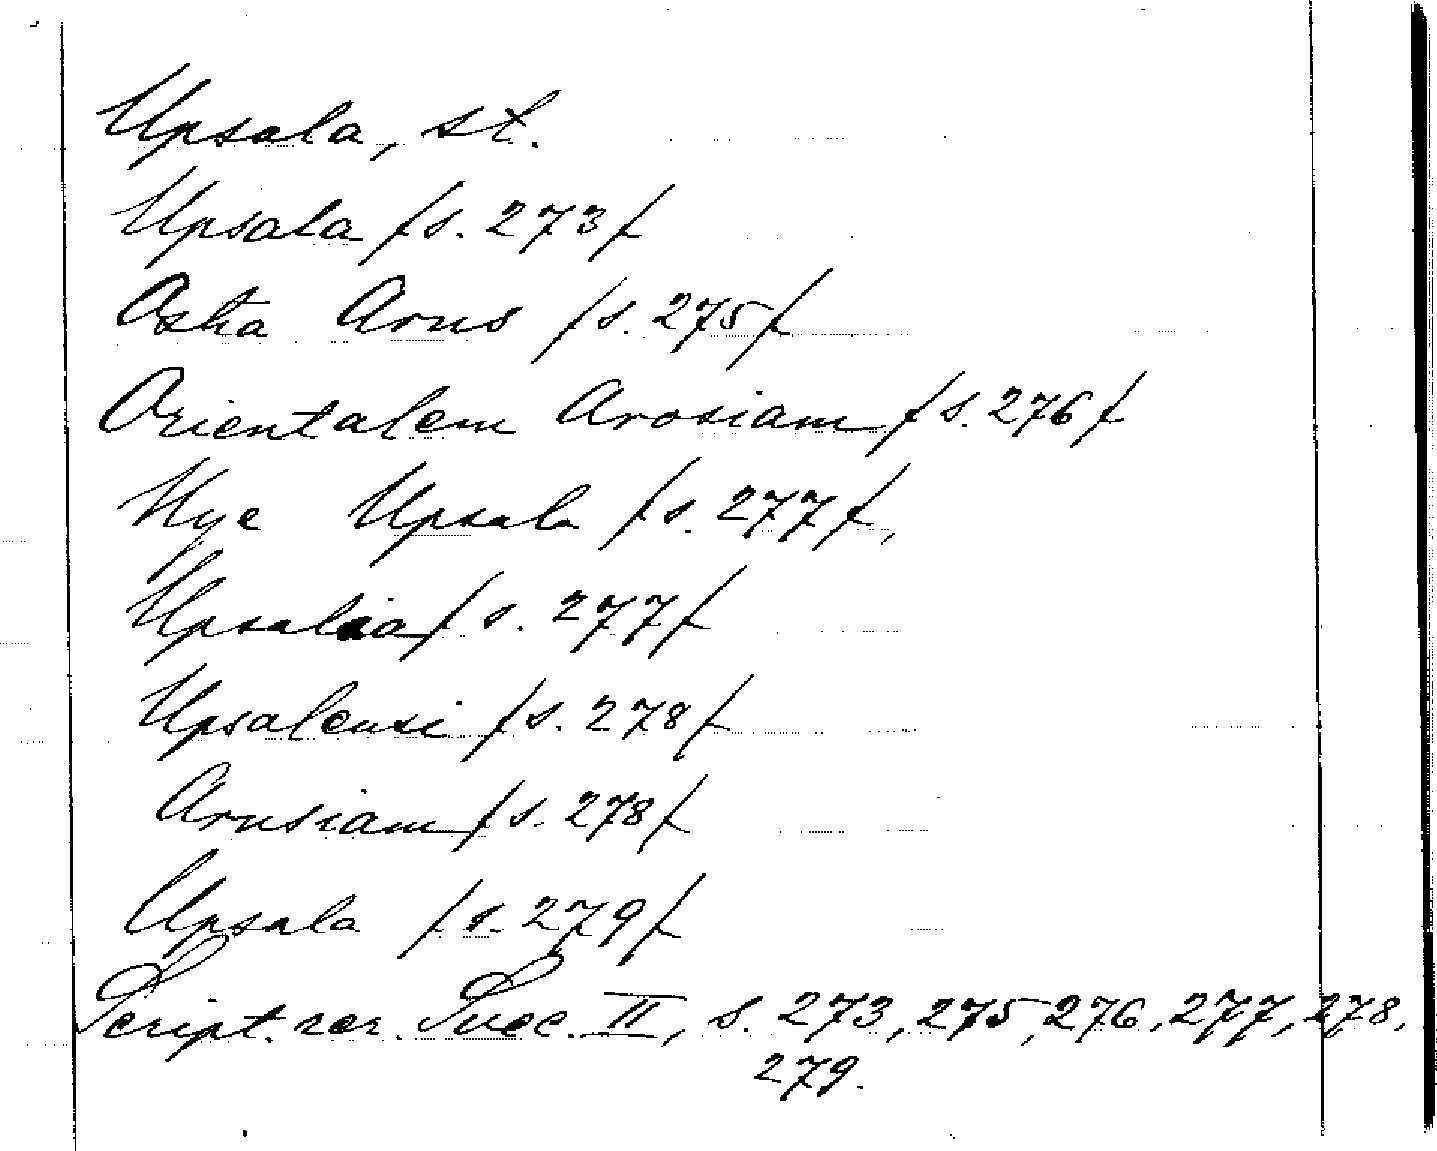 Upsala, st.
Upsala /s. 273/
Østra Arus /s. 275/
Orientalem Arosiam /s. 276/
Nye Upsala /s. 277/,
Upsalia /s. 277/
Upsalensi /s. 278/
Arusiam /s. 278/
Upsala /s. 279/
Script. rer. Suec. II, s. 273, 275, 276, 277, 278,
279.